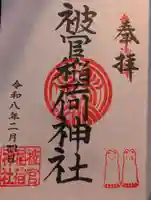 奉拝
被官稲荷神社
令和八年二月
被官稲荷神社